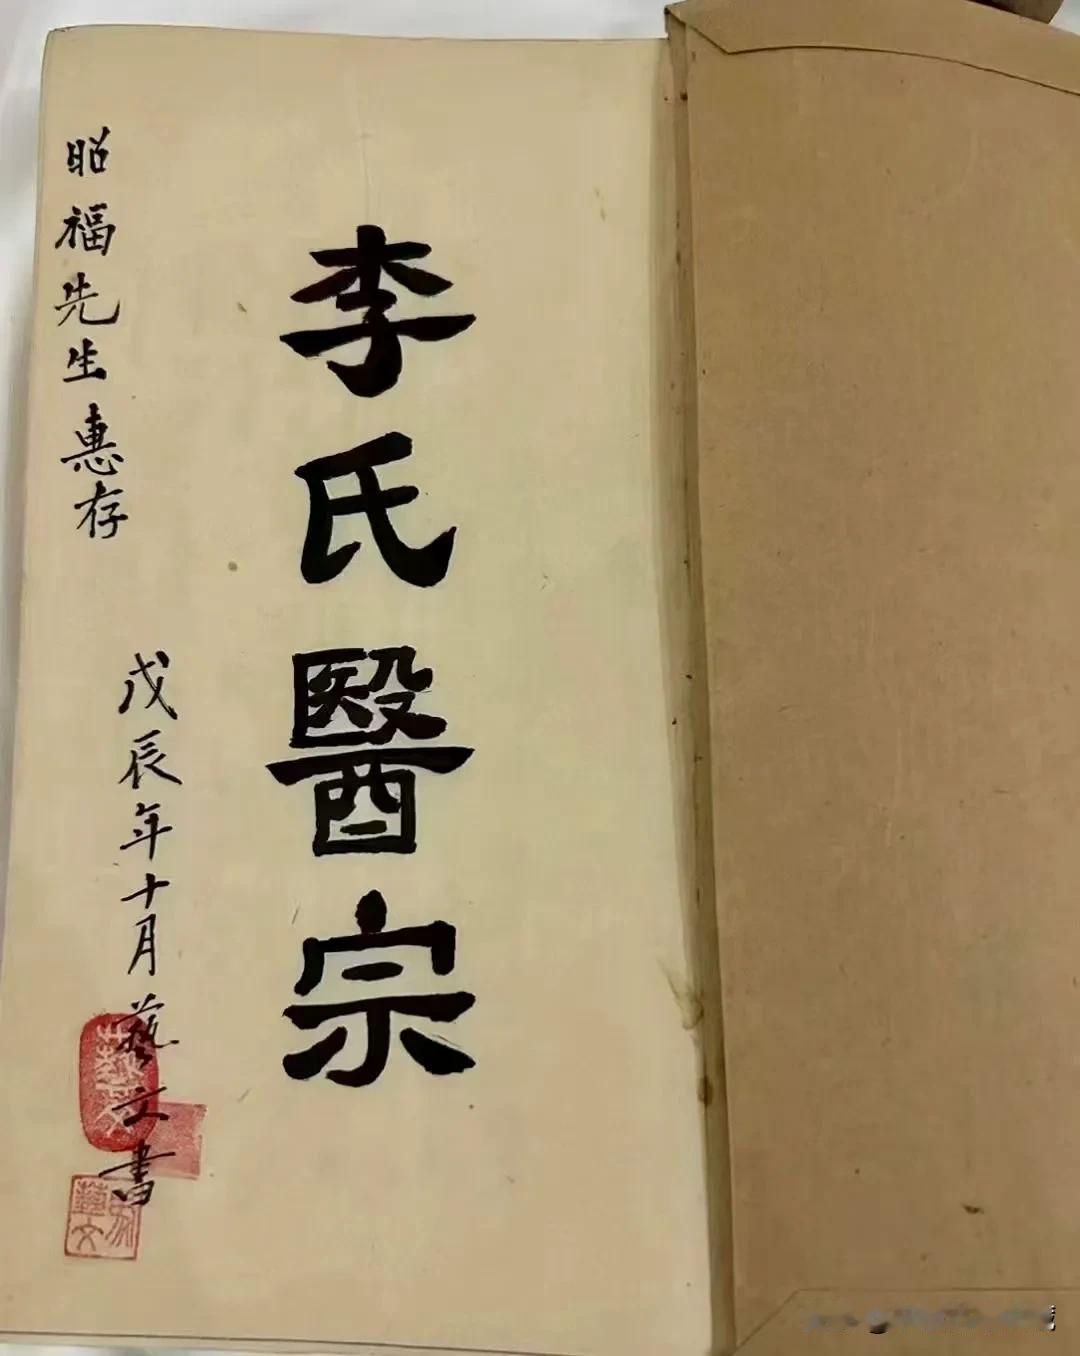 李氏醫宗
昭福先生惠存
戊辰年十月藝文書